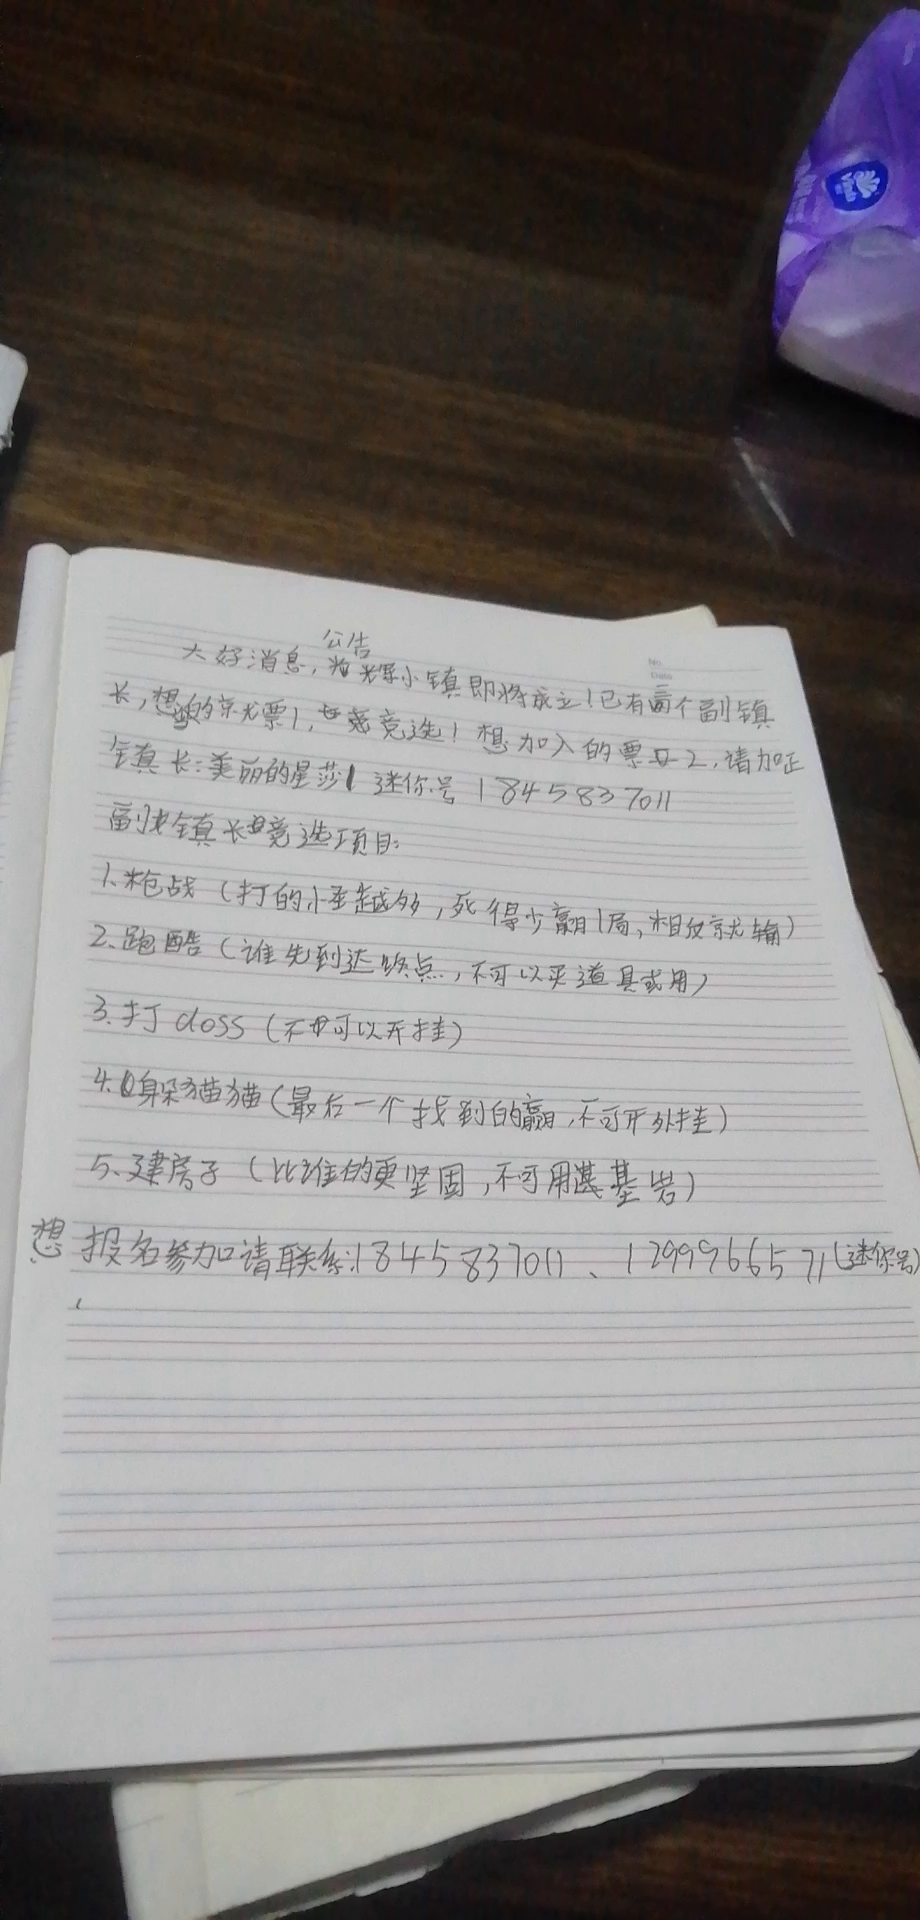 公告
大好消息,光辉小镇即将成立!已有三个副镇
长,想的京尤票1,竞选!想加入的票2,请加正
镇长:美丽的星莎1 迷你号 1845837011
副镇长竞选项目:
1、枪战(打的小怪越多,死得少赢1局,相反就输)
2、跑酷(谁先到达终点,不可以买道具或用)
3、打doss(不可以开挂)
4、躲猫猫(最后一个找到的赢,不可开外挂)
5、建房子(比谁的更坚固,不可用基岩)
想报名参加请联系:1845837011、1299966571(迷你号)
No
Date